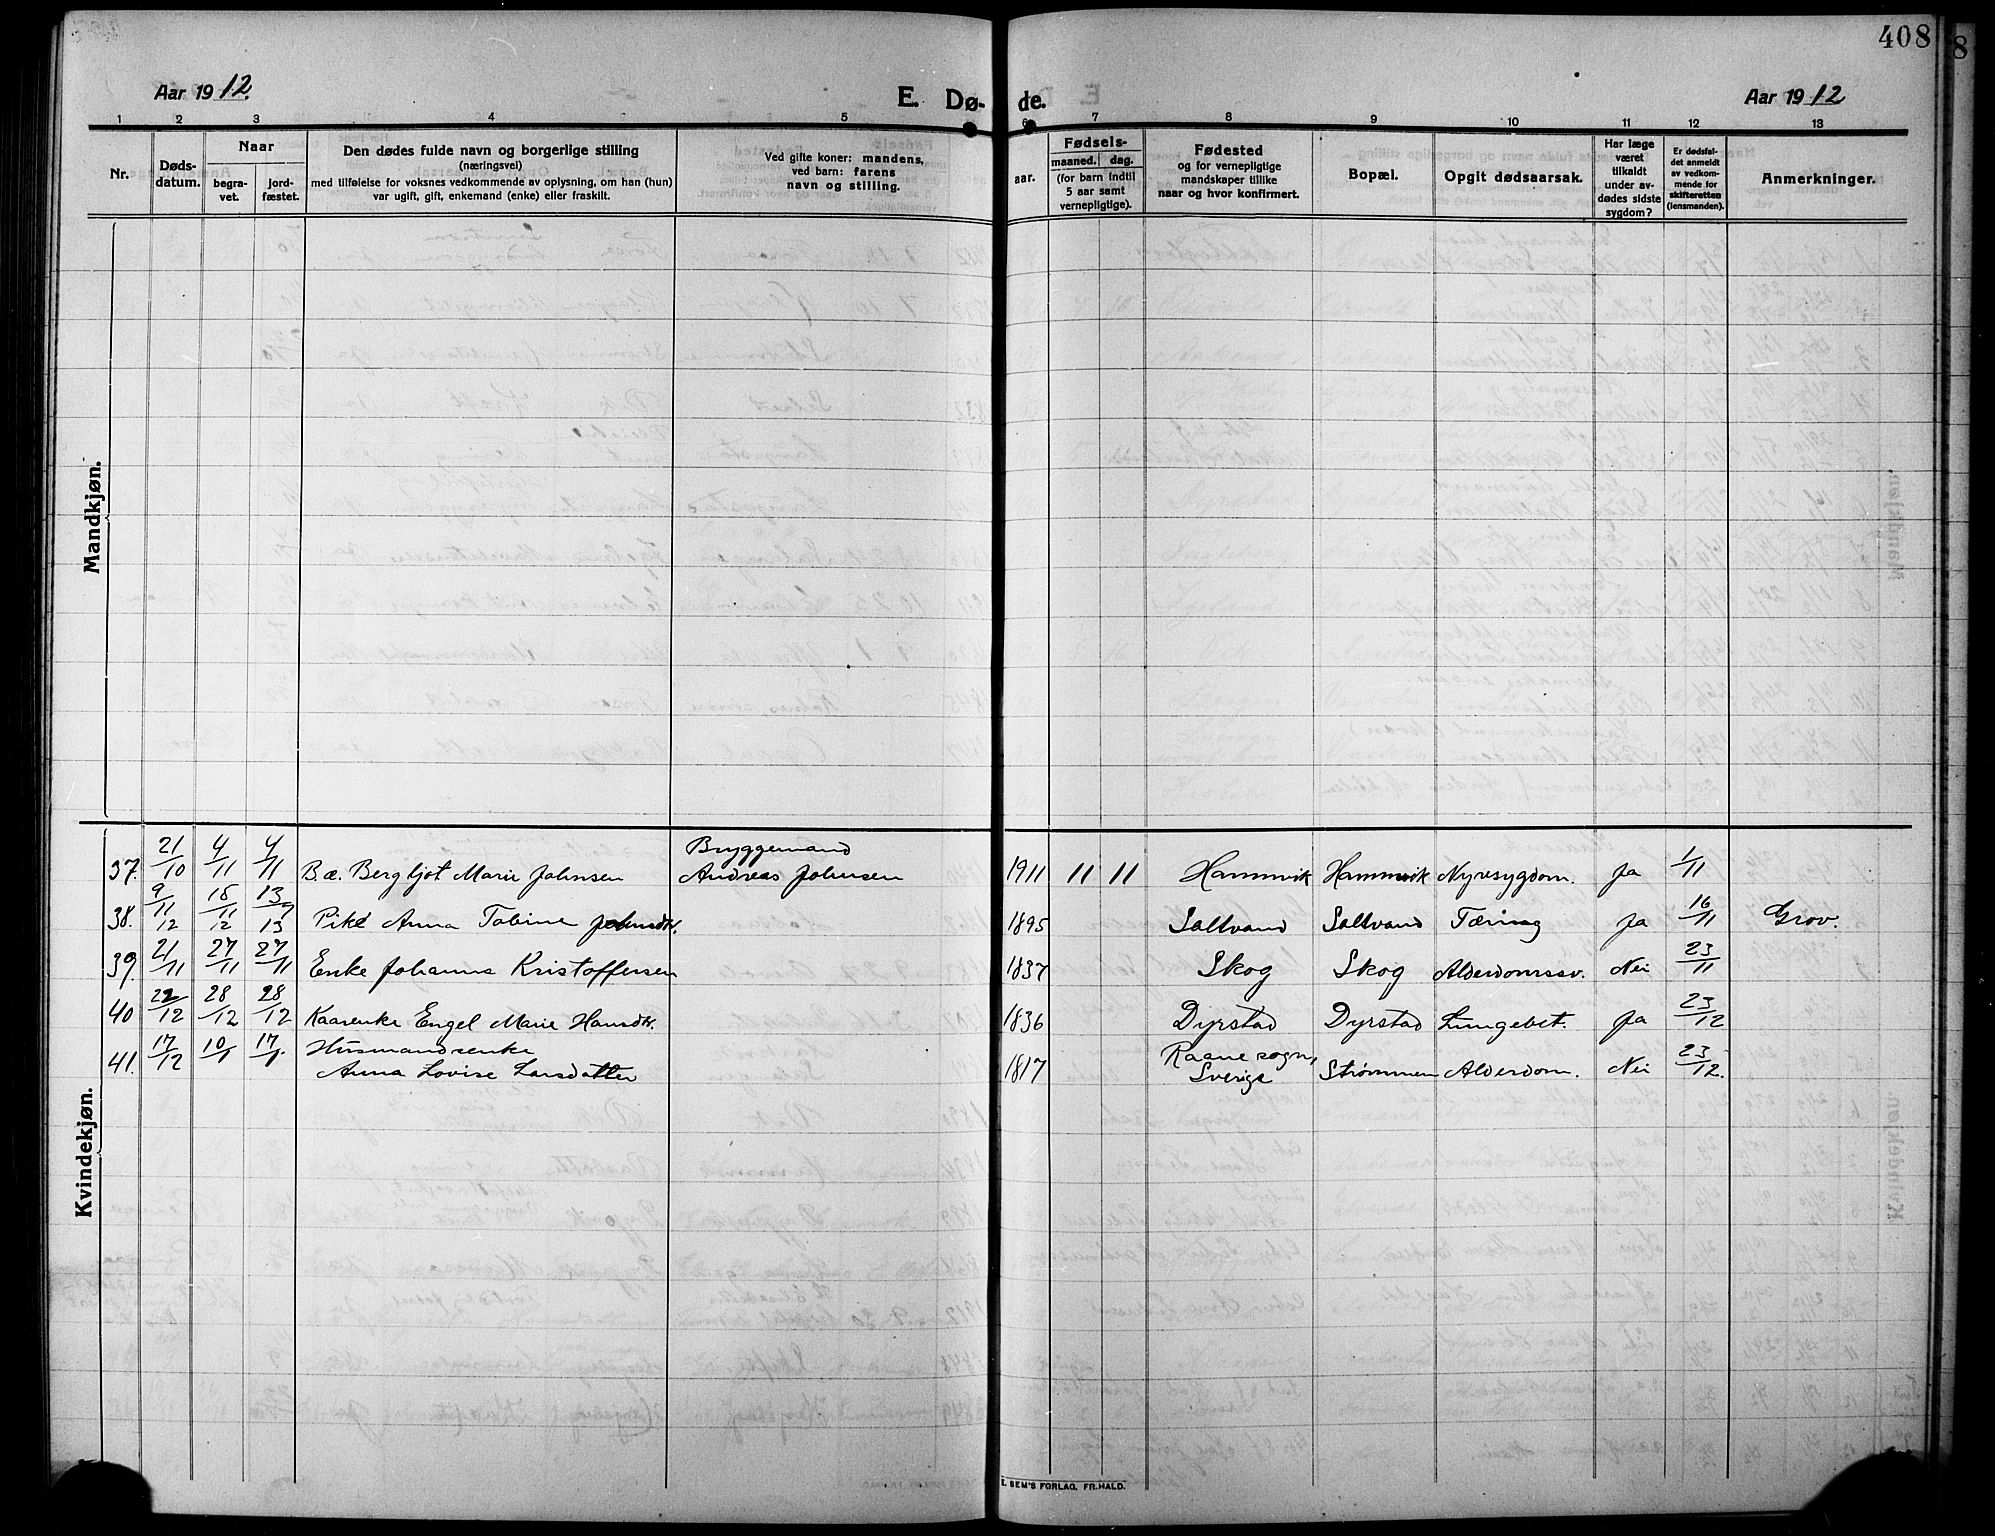 408
Aar 1912.
E. Dø- de.
Aar 1912
1 2 3 4 5 6 7 8 9 10 11 12 13
Nr.
Døds-
datum.
Naar
begra-
vet.
jord-
fæstet.
Den dødes fulde navn og borgerlige stilling
(næringsvei)
med tilføielse for voksnes vedkommende av oplysning, om han (hun)
var ugift, gift, enkemand (enke) eller fraskilt.
Ved gifte koner: mandens,
ved barn: farens
navn og stilling.
Fødsels-
aar.
maaned.
dag.
(for barn indtil
5 aar samt
vernepligtige).
Fødested
og for vernepligtige
mandskaper tillike
naar og hvor konfirmert.
Bopæl.
Opgit dødsaarsak.
Har læge
været
tilkaldt
under av-
dødes sidste
sygdom?
Er dødsfal-
det anmeldt
av vedkom-
mende for
skifteretten
(lensmanden).
Anmerkninger.
Mandkjøn.
Kvindekjøn.
Bryggemand
37. 21/10 4/11 4/11 B.æ. Bergljot Marie Johnsen Andreas Johnsen 1911 11 11 Hammvik Hammvik Nyresygdom. Ja 1/11
38. 9/11 12 15/11 12 13/7 13 Pike Anna Tobine Johnsdtr. 1895 Saltvand Saltvand Tæring Ja 16/11 Grov.
39. 21/11 27/11 27/11 Enke Johanna Kristoffersen 1837 Skog Skog Alderdomssv. Nei 23/11
40 22/12 28/12 28/12 Kaarenke Engel Marie Hansdtr. 1836 Dyrstad Dyrstad Lungebet. Ja 23/12
41. 17/12 10/1 17/1. Husmandsenke
Anna Lovise Larsdatter 1817 Raane sogn,
Sverige Strømmen Alderdom. Nei 23/12.
E. SEM'S FORLAG, FR.HALD.